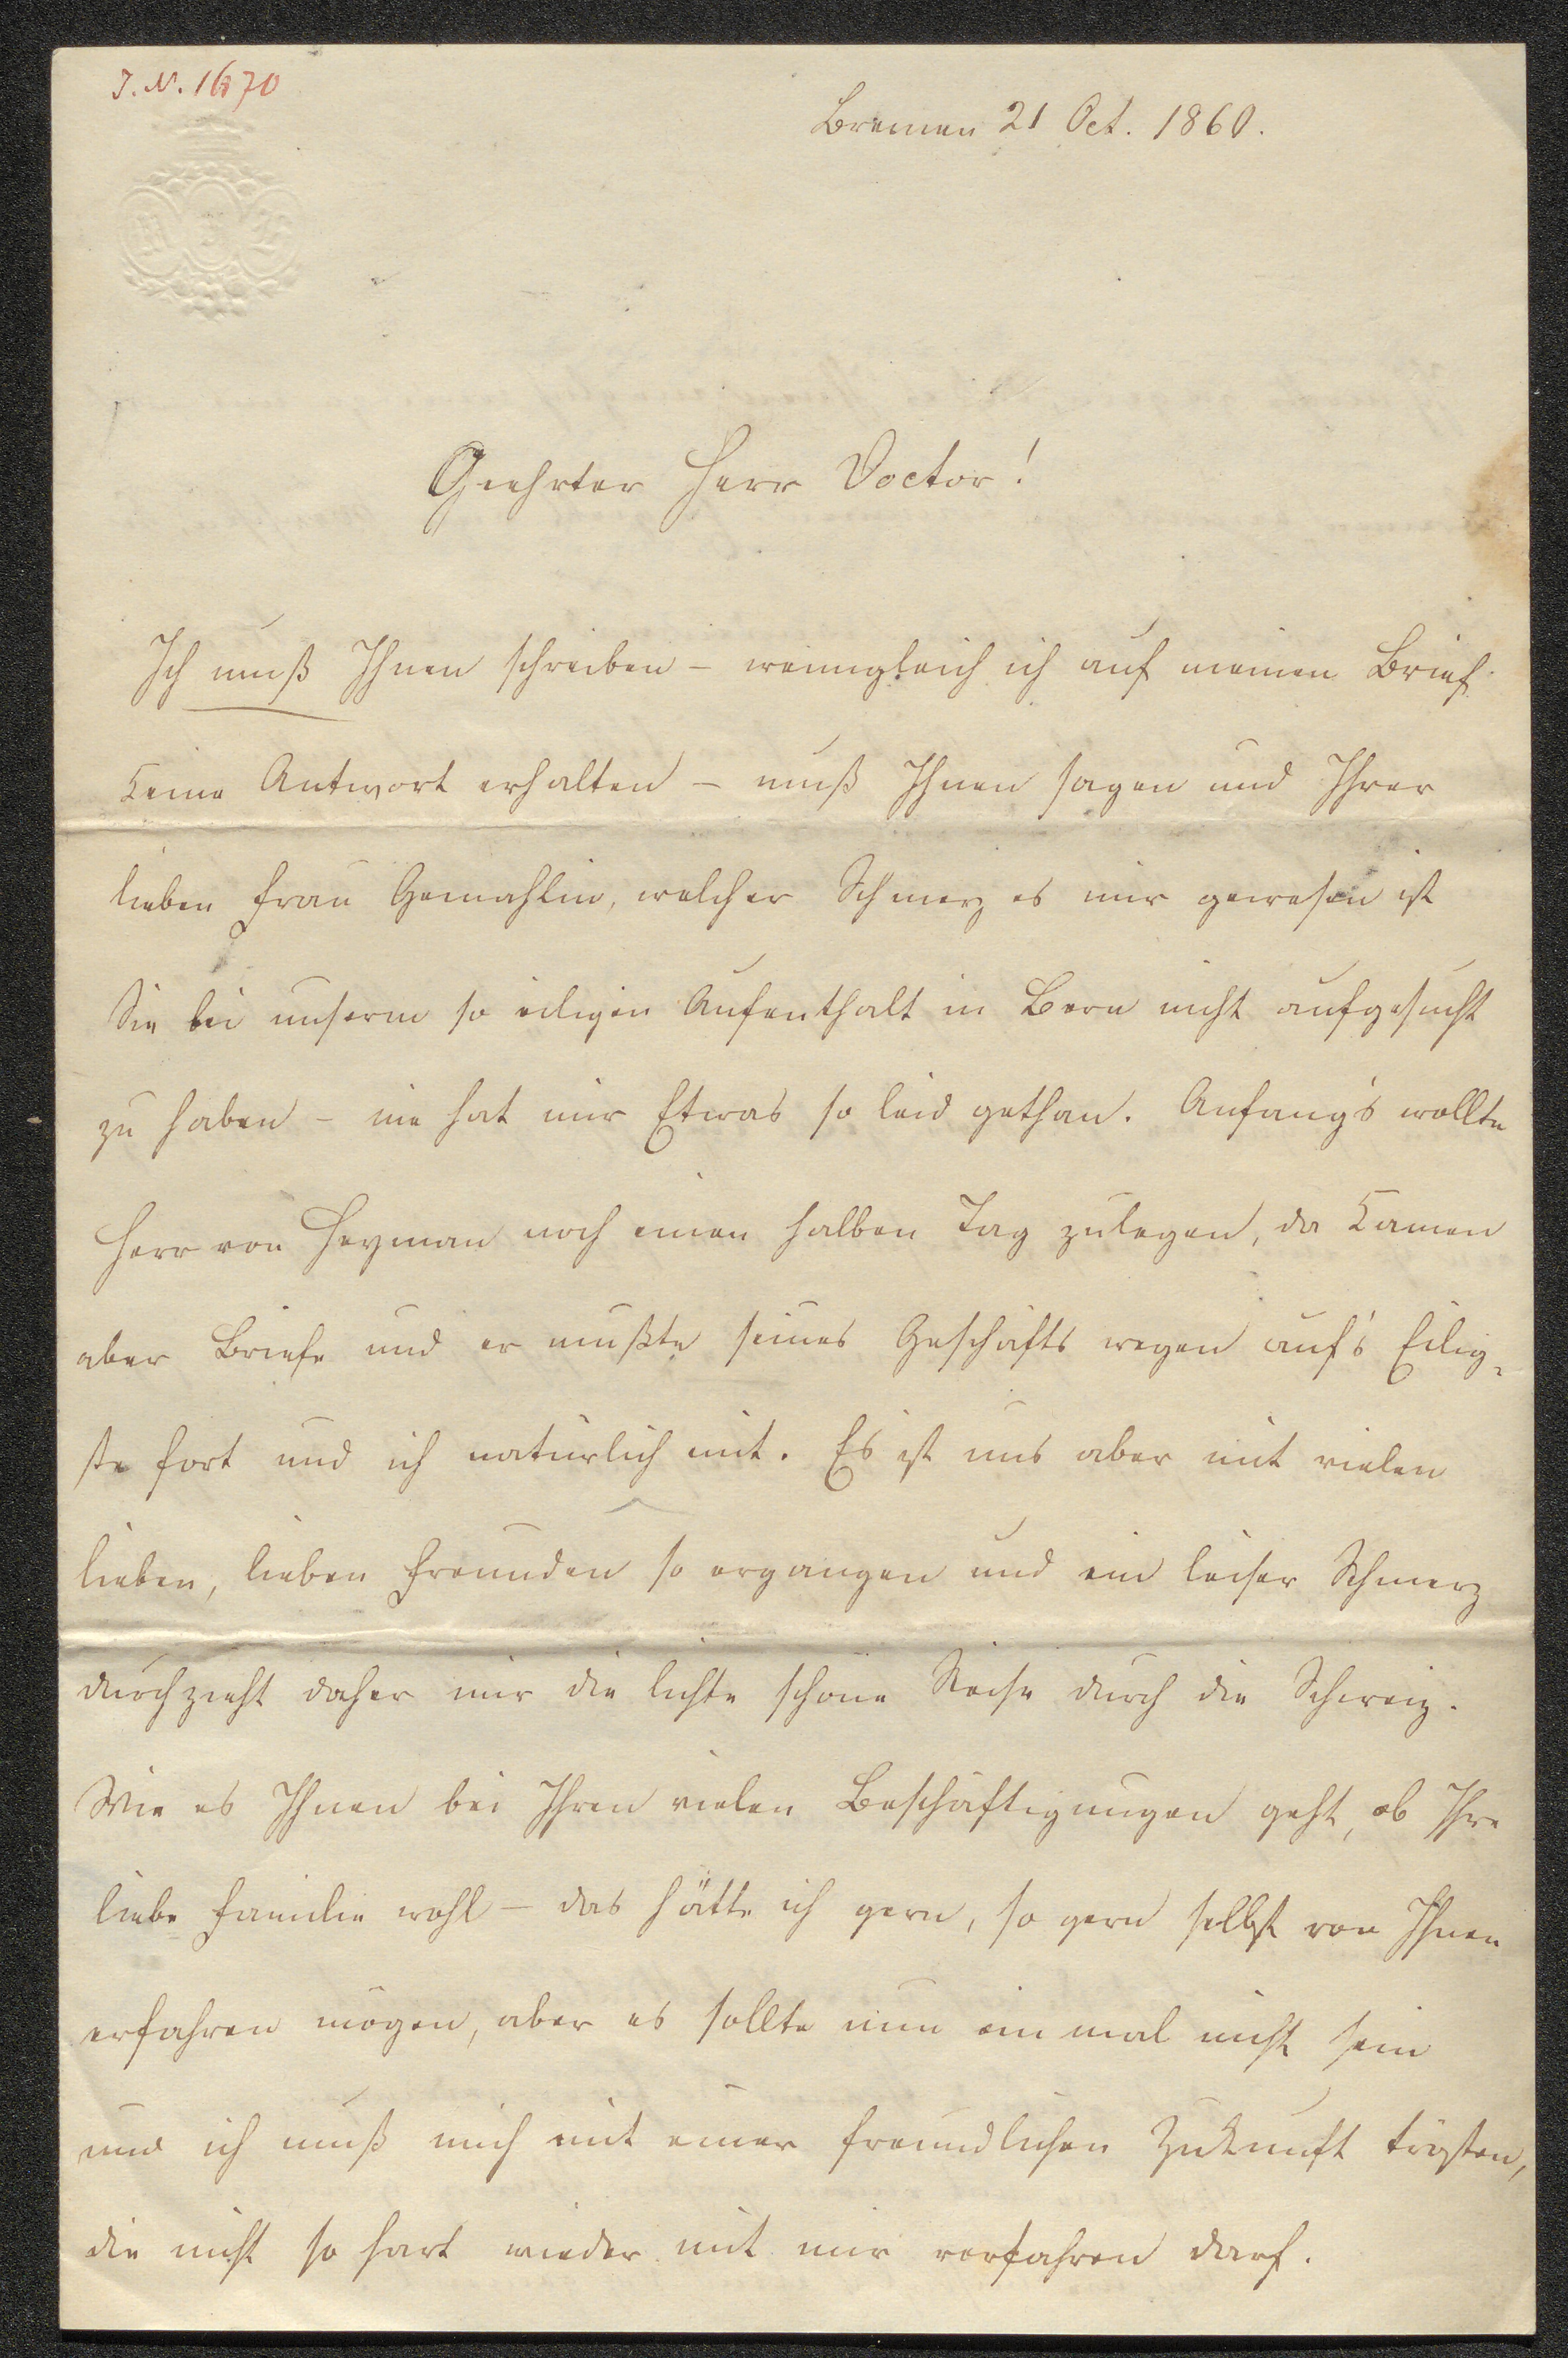 J. N. 1670
Bremen 21 Oct. 1860.
Geehrter Herr Doctor!
Ich muß Ihnen schreiben – wenngleich ich auf meinen Brief
keine Antwort erhalten – muß Ihnen sagen und Ihrer
lieben Frau Gemahlin, welcher Schmerz es mir gewesen ist
Sie bei unserm so eiligen Aufenthalt in Bern nicht aufgesucht
zu haben – nie hat mir Etwas so leid gethan. Anfang's wollte
Herr von Heyman noch einen halben Tag zulegen, da kamen
aber Briefe und er mußte seines Geschäfts wegen auf's Eilig-
ste fort und ich natürlich mit. Es ist uns aber mit vielen
lieben, lieben Freunden so ergangen und ein leiser Schmerz
durchzieht daher mir die lichte schöne Reise durch die Schweiz.
Wie es Ihnen bei Ihren vielen Beschäftigungen geht, ob Ihre
liebe Familie wohl – das hätte ich gern, so gern selbst von Ihnen
erfahren mögen, aber es sollte nun ein mal nicht sein
und ich muß mich mit einer freundlichen Zukunft trösten,
die nicht so hart wieder mit mir verfahren darf.